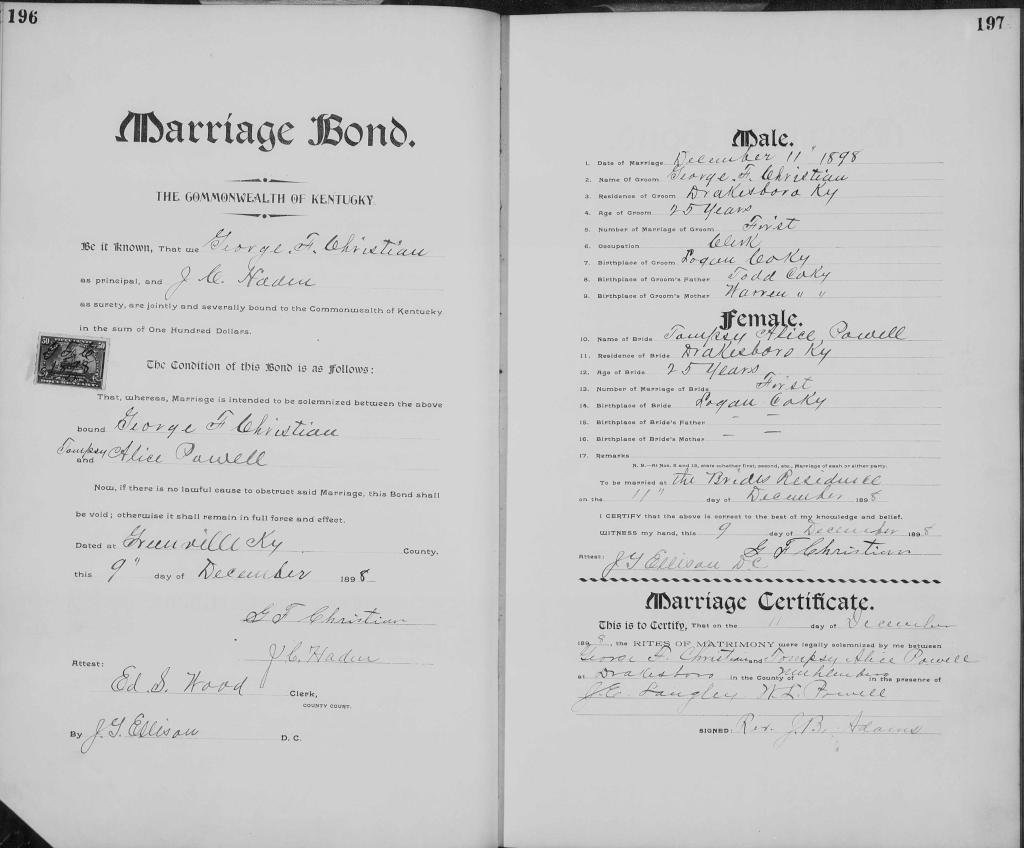 196
Marriage Bond.
THE COMMONWEALTH OF KENTUCKY.
Be it Known, That we George. F. Christian
as principal, and J C. Haden
as surety, are jointly and severally bound to the Commonwealth of Kentucky
in the sum of One Hundred Dollars.
50 50
The Condition of this Bond is as Follows:
That, whereas, Marriage is intended to be solemnized between the above
bound George F Christian
Tompsy
and Alice Powell
Now, if there is no lawful cause to obstruct said Marriage, this Bond shall
be void; otherwise it shall remain in full force and effect.
Dated at Greenville Ky County.
this 9" day of December 1898
G F Christian
J. C. Haden
Attest:
Ed. S. Wood Clerk,
COUNTY COURT.
By J. G. Ellison D. C.
197
Male.
1. Date of Marriage December 11" 1898
2. Name Of Groom George. F. Christian
3. Residence of Groom Drakesboro Ky
4. Age of Groom 25 Years
5. Number of Marriage of Groom First
6. Occupation Clerk
7. Birthplace of Groom Logan Co Ky
8. Birthplace of Groom's Father Todd Co Ky
9. Birthplace of Groom's Mother Warren " "
Female.
10. Name of Bride Tompsy Alice, Powell
11. Residence of Bride Drakesboro Ky
12. Age of Bride 25 Years
13. Number of Marriage of Bride First
14. Birthplace of Bride Logan Co Ky
15. Birthplace of Bride's Father — —
16. Birthplace of Bride's Mother — —
17. Remarks
N. B.—At Nos. 5 and 13, state whether first, second, etc., Marriage of each or either party.
To be married at the Brides Residence
on the 11" day of December 1898
I CERTIFY that the above is correct to the best of my knowledge and belief.
WITNESS my hand, this 9 day of December 1898
G F Christian
Attest: J G Ellison D C
Marriage Certificate.
This is to Certify, That on the 11 day of December
1898, the RITES OF MATRIMONY were legally solemnized by me between
George F. Christian and Tompsy Alice Powell
at Drakesboro in the County of Muhlenberg in the presence of
J. C. Langley W. L. Powell
SIGNED: Rev. J. B. Adams